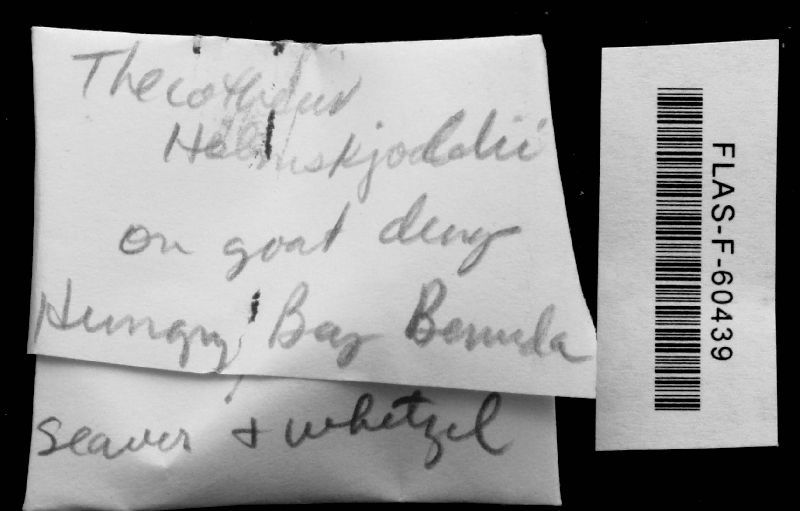 Thecotheus
Holmskjoldii
on goat dung
Hungry Bay Bermuda
Seaver & Whetzel
FLAS-F-60439